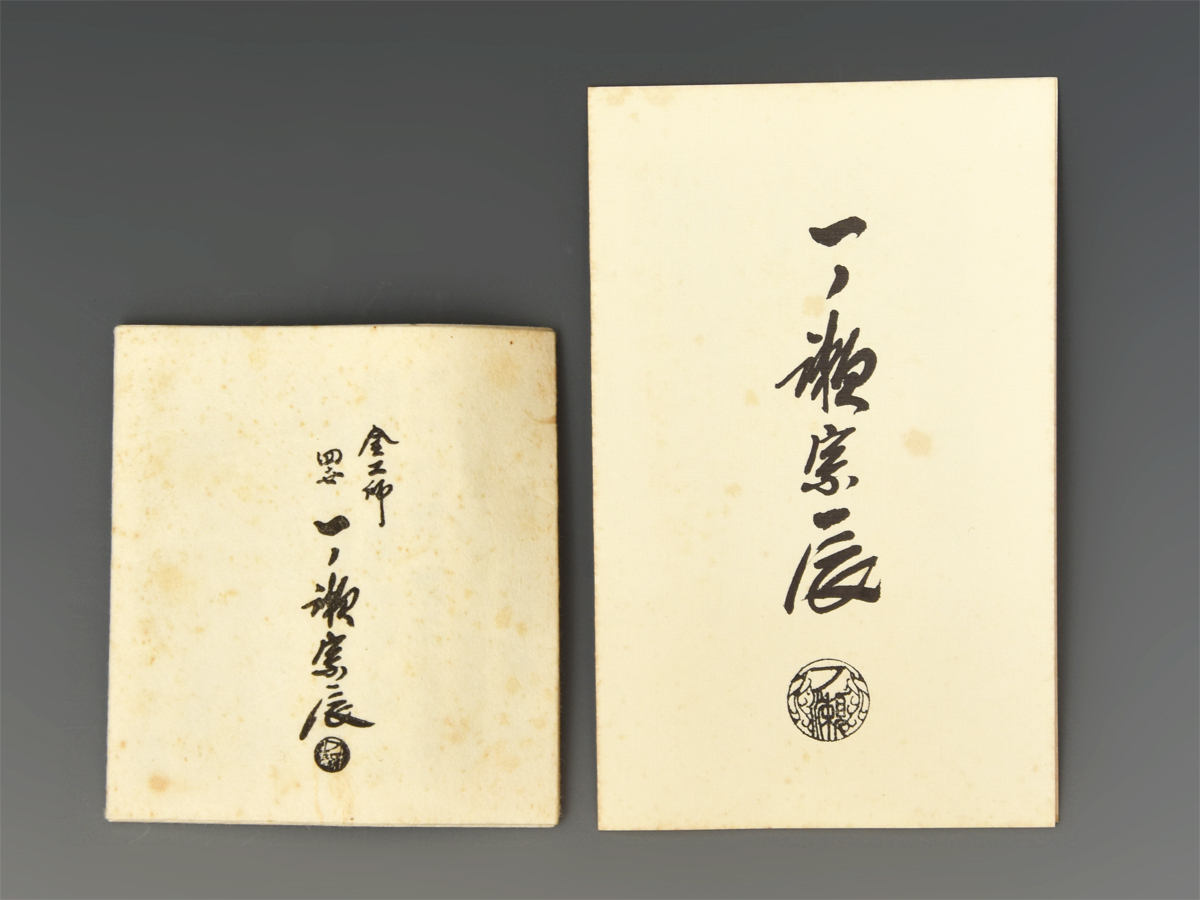 金工師
四世
一ノ瀬宗辰
一ノ瀬宗辰
一ノ瀬